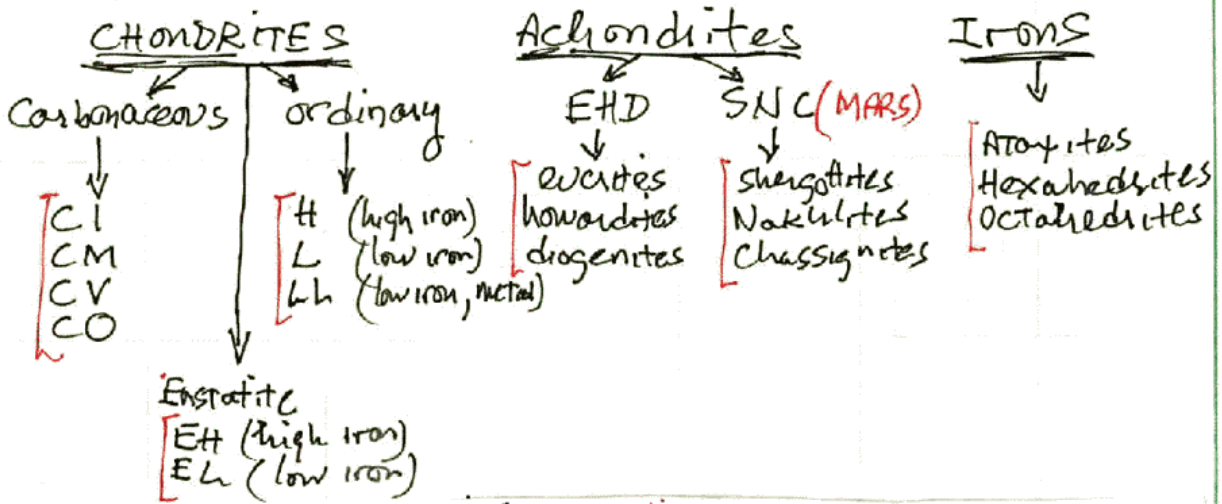 CHONDRITES
Carbonaceous
CI
CM
CV
CO
ordinary
H (high iron)
L (low iron)
LL (low iron, metal)
Enstatite
EH (high iron)
EL (low iron)
Achondrites
EHD
eucrites
howardites
diogenites
SNC (MARS)
Shergottites
Nakhlites
Chassignites
Irons
Ataxites
Hexahedrites
Octahedrites